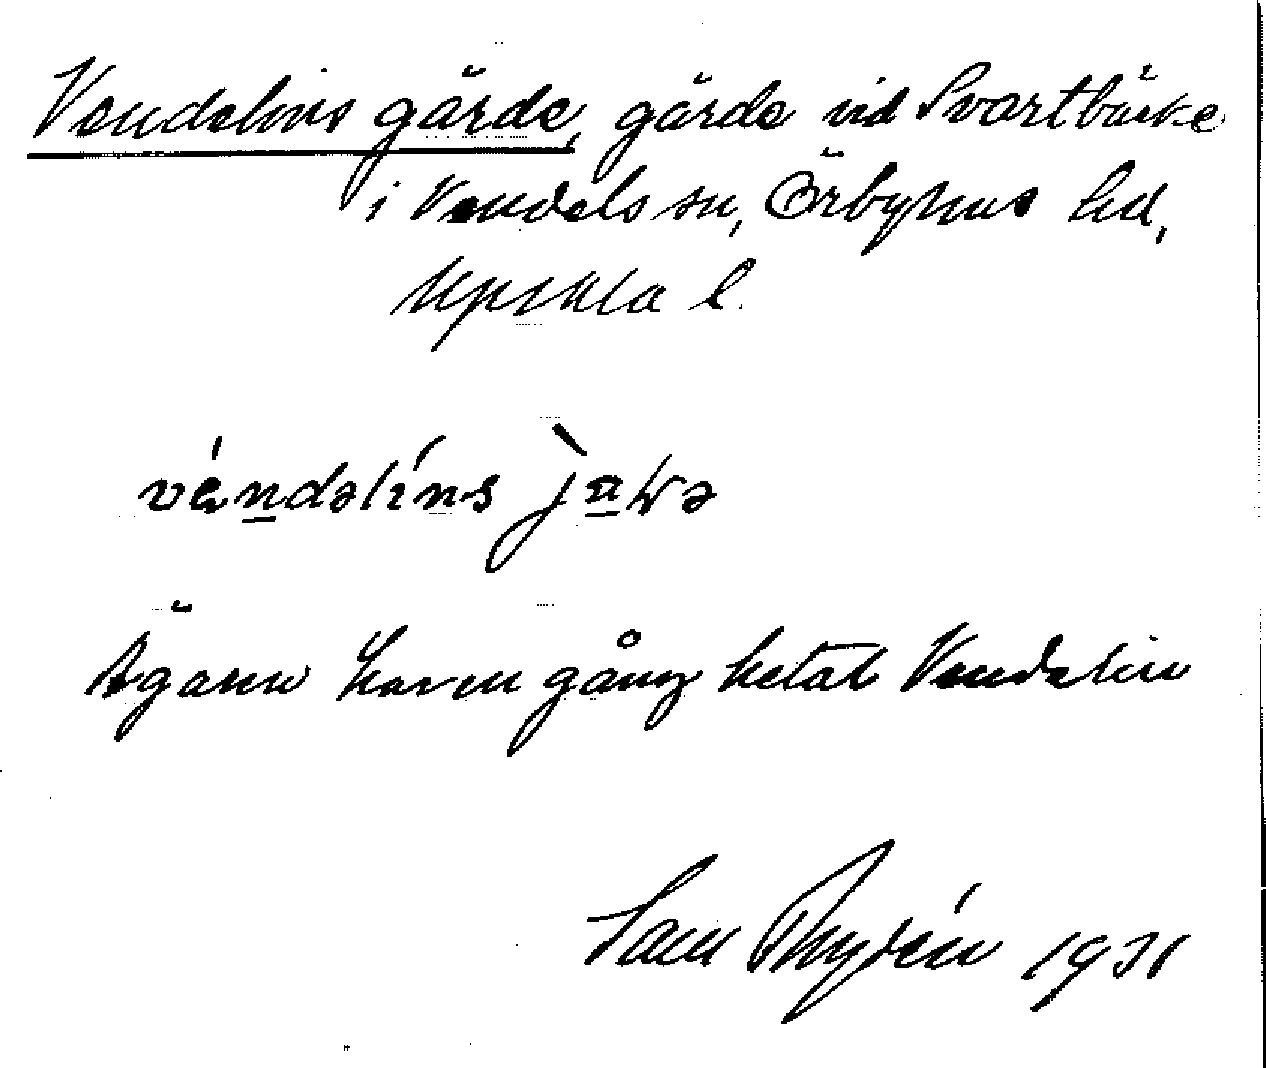 Vendelins gärde, gärde vid Svartbäcke
i Vendels sn, Örbyhus hd,
Upsala l.
vendəlins
Ägaren har en gång hetat Vendelin
Sam Thydén 1931